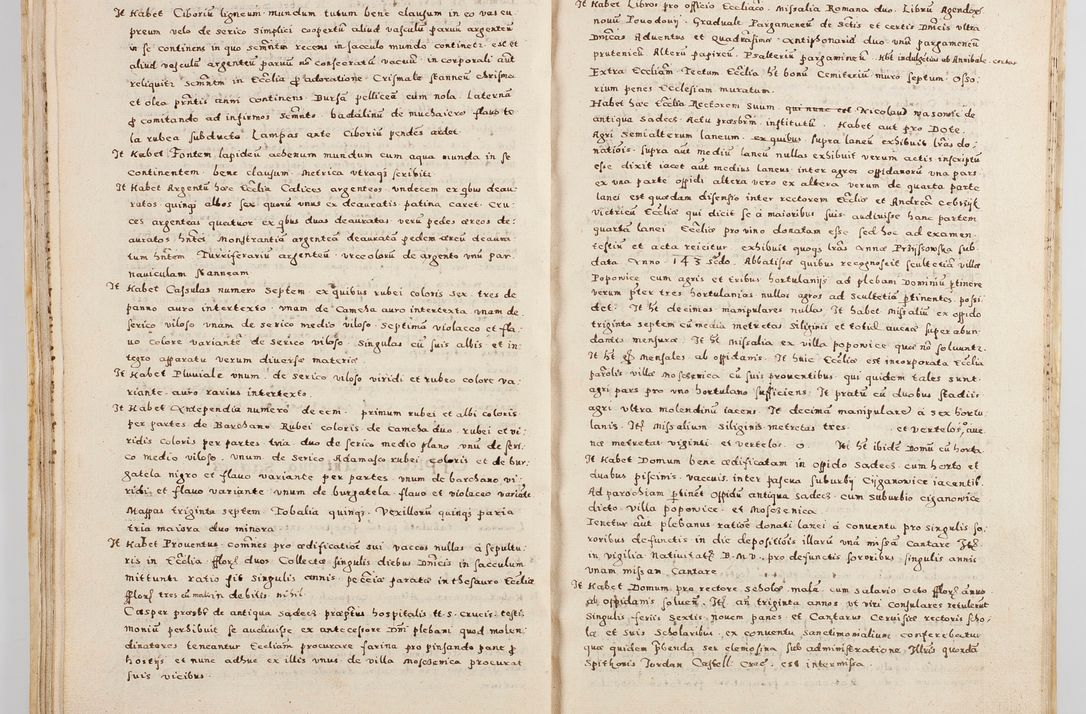 It Habet Ciboriũ ligneum mundum tutum bene clausum in eo vas cu
preum velo de serico simplici coopertũ aliud vasculũ paruũ argenteũ
in se continens in quo scm̃tm recens in sacculo mundo continetr. est et
aliud vasculũ argenteũ paruũ nõ consecratũ vacuũ in corporali aũt
reliquit scm̃tm in Ecclĩa adoratione. Crismale stanneũ chrisma
et olea prñtis anni continens. Bursã pelliceã cum nola. Laternã
comitando ad infirmos Scm̃nto. badalinũ de muchaiero flauo te
la rubea subducto Lampas ante Ciboriũ pendẽs ardet.
It Habet Fontem lapideũ aeneum mundum cum aqua munda in se
continentem. bene clausum. Metrica vtraqȝ scribitr.
It Habet Argentũ haec Ecclĩa Calices argenteos vndecem ex qbus deau
ratos quinqȝ albos sex quorũ vnus ex deauratis patina caret. Cru
ces argenteas quatuor ex qbus duas deauratas verũ pedes aereos de:
auratos hñtes. Monstrantiã argenteã deauratã pedem aereũ deaura
tum hñtem. Turriferariũ argenteũ. vrceolorũ de argento vnũ par.
nauiculam stanneam.
It Habet Casulas numero Septem ex quibus rubei coloris sex. tres de
panno auro intertexto. vnam de Camcha auro intertexta vnam de
serico viloso vnam de serico medio viloso. Septimã violaceo et fla:
uo colore variantẽ de serico viloso. Singulas cũ suis albis et in:
tegro apparatu verum diuersae materiae.
It Habet Pluuiale vnum. de serico viloso viridi et rubeo colore va:
riante. auro rarius intertexto.
It Habet Antependia numero decem. primum rubei et albi coloris
per partes de Barchano. Rubei coloris. de Camcha duo. rubei et vi:
ridis coloris per partes tria. duo de serico medio plano. vnũ de seri:
co medio viloso. vnum de Serico Adamasco rubei coloris et de bur:
gatela nigro et flauo variante per partes. vnum de barchano vi:
ridi et flauo variante. vnum de burgatela. flauo et violaceo variante
Mappas triginta septem. Tobalia quinqȝ. Vexillorũ quinqȝ paria
tria maiora duo minora.
It Habet Prouentus. comnes pro aedificatiõe sui. vaccas nullas. a sepultu:
ris in Ecclĩa fflorȝ duos Collecta singulis diebus Dnĩcis in sacculum
mittuntr. ratio fit singulis annis. pecĩa parata in thesauro Ecclĩae
fflorȝ tres cũ in debitis nihil.
Casper praesbr̃ de antiqua sadecz praeptus hospitalis tt. s. Crucis. testi:
monium perhibuit se audiuisse ex antecessore Dñi plebani quod molen:
dinatores teneantur Ecclĩam procurare farina pro pinsando pane
hostijs et nunc adhuc ex illis vnus de villa Moszczenica procurat
suis vicibus.
It Habet Libros pro officio Ecclĩae. Missalia Romana duo. Librũ Agendorũ
nouũ Gradualẽ Pargameneũ de Sctis et certis Dnĩcis vltra
Dnĩcas Aduentus et Quadragesimae Antiphonaria duo vnũ pargameneũ
prutenicũ Alterũ papireũ. Psalteriũ pargamineũ. Hẽt indulgẽtias ab Annibale. certas
Extra Ecclĩam. Tectum Ecclĩa hẽt bonũ Cemiteriũ muro septum. Osso:
rium penes Ecclesiam muratum.
Habet haec Ecclĩa Rectorem suum. qui nunc est Nicolaus Masonic de
antiqua Sadecz. Actu praesbrm̃ institutũ. Habet aut pro Dote.
Agri Semialterum laneum. ex quibus supra laneũ exhibuit lr̃as do:
natiõis. supra aũt mediũ laneũ nullas exhibuit verum actis inscriptũ
esse dixit iacet aũt medius laneus inter agros oppidanorũ vna pars
ex vna parte oppidi altera vero ex altera verum de quarta parte
lanei est quaedam disensio inter rectorem Ecclĩae et Andreã cebrzik
victricũ Ecclĩae qui dicit se a maioribus suis audiuisse hanc partem
quartã lanei Ecclĩae pro vino donatam esse sed hoc ad examen.
testiũ et acta reicitur. exhibuit quoqȝ lr̃as Annae Przyssowska sub
data Anno 143 sedo. Abbatissae quibus recognoscit scultetiã villae
Popowice cum agris et tribus hortulanijs ad plebani Dominiũ ptinere
verum pter tres hortulanias nullos agros ad scultetiã ptinentes possi:
det. It hẽt decimas manipulares nullas. It habet Missaliũ ex oppido
triginta septem cũ media metretas Siliginis et totid auenae superabun:
dantis mensurae. It hẽt Missalia ex villa popowice quae nõ soluuntr.
It hẽt Mensales ab oppidanis. It huic Ecclĩae est incorporata Ecclĩa
parolĩs villae Moszczenica cũ suis prouentibus. qui quidem tales sunt.
agri pars pro vno hortulano sufficiens. It pratũ cũ duobus stadiis
agri vltra molendinũ iacens. It decimã manipularẽ a sex hortu:
lanis. Itȝ Missalium Siliginis metretas tres et vertelos, aue
nae metretas viginti et vertelos. 0 Ni hẽt ibidẽ Domũ cũ horto.
It Habet Domum bene aedificatam in oppido Sadecz. cum horto et
duabus piscinis. vacuis inter pascua suburbij Cyganowice iacentib.
Ad parochiam ptinet Oppidũ antiqua sadecz cum suburbio ciganowice
dicto. villa popowice. et Moszczenica.
Tenetur aũt plebanus ratiõe donati lanei a conuentu pro Singulis so:
roribus defunctis in die depositiõis illarũ vnã missã Cantare. Itȝ
in vigilia Natiuitatȝ B. M. V. pro defunctis sororibus singulis annis
vnam missam Cantare.
It Habet Domum pro rectore Scholae malã. cum salario Octo fflorȝ annuo
ab oppidanis solueñ. Itȝ añ triginta annos vt viri consulares retulerũt
singulis feriis sextis nouem panes et Cantarus Ceruisiae rectoris scho:
lae et suis Scholaribus. ex conuentu Sanctimonialium conferebatur
quae quidem pbenda seu elemosina sub administratione Illr̃is quondã
Spithonis Jordan Castell. Crac. est intermissa.